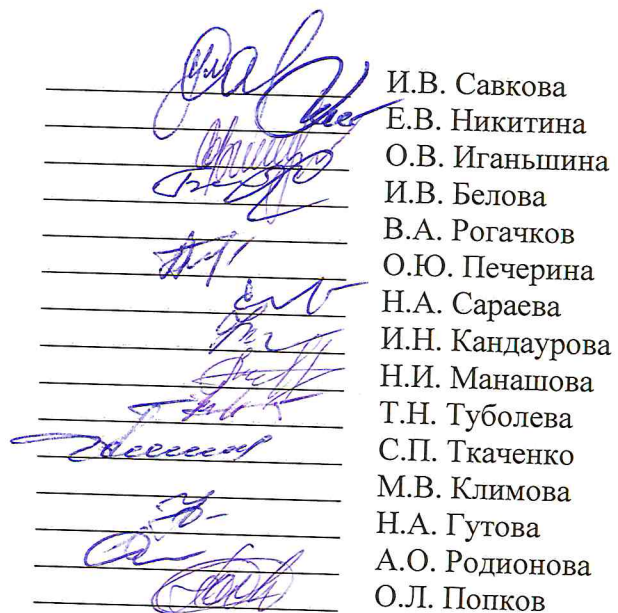 И.В. Савкова
Е.В. Никитина
О.В. Иганьшина
И.В. Белова
В.А. Рогачков
О.Ю. Печерина
Н.А. Сараева
И.Н. Кандаурова
Н.И. Манашова
Т.Н. Туболева
С.П. Ткаченко
М.В. Климова
Н.А. Гутова
А.О. Родионова
О.Л. Попков